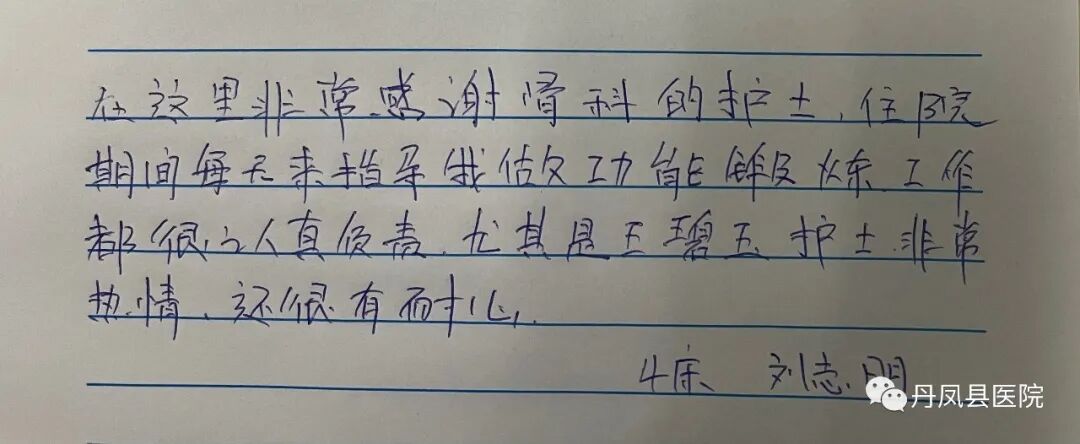 在这里非常感谢骨科的护士，住院
期间每天来指导我做功能锻炼，工作
都很认真负责，尤其是王碧玉护士，非常
热情，还很有耐心，
4床 刘志明
丹凤县医院